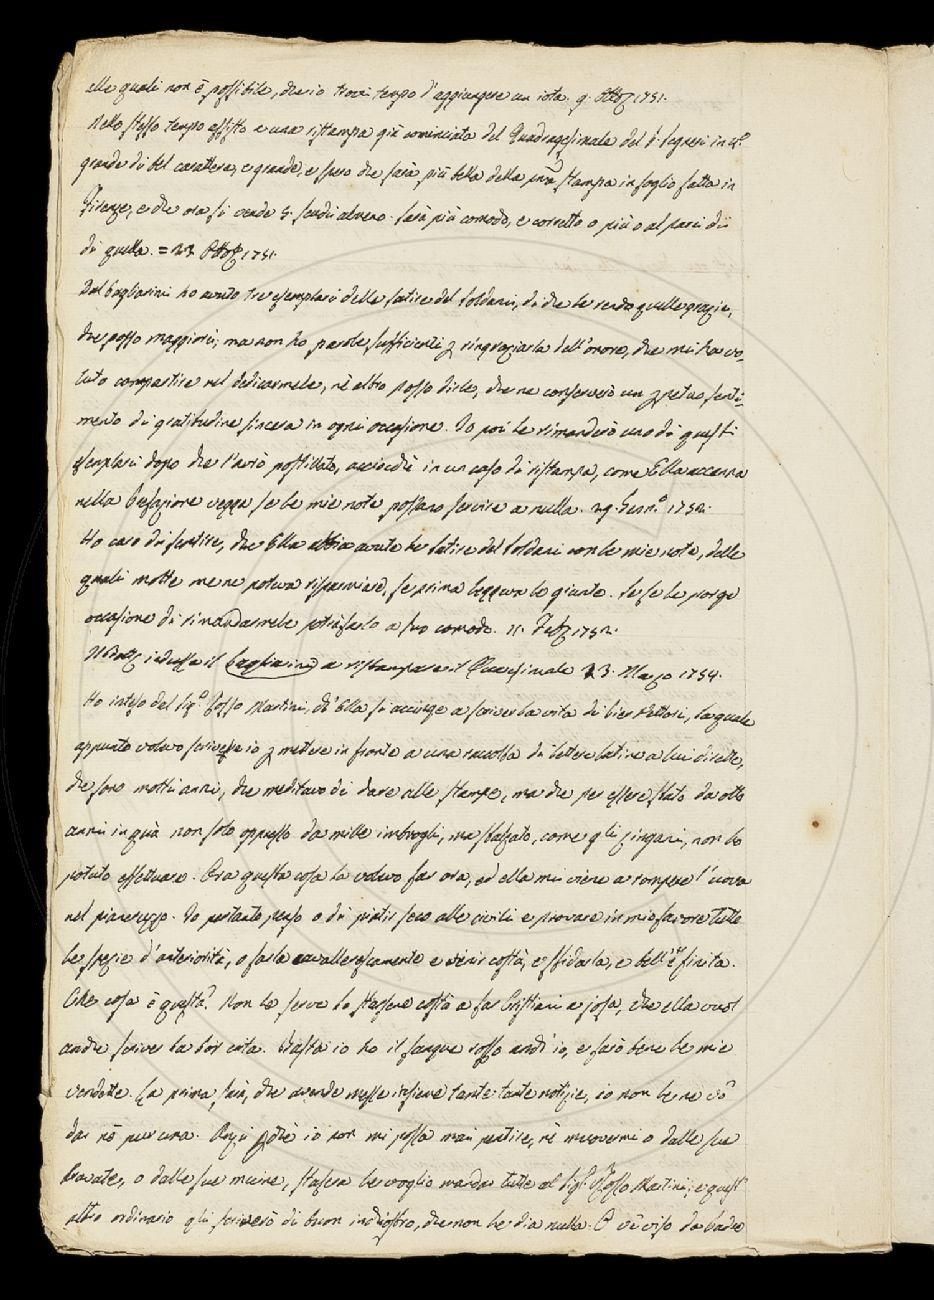 alle quali non è possibile, che io trovi tempo d'aggiungere un iota. 9. Ottob. 1751.
Nello stesso tempo assisto a una ristampa già cominciata del Quadragesimale del P. Segneri in 4.º
grande di bel carattere, e grande, e spero che sarà più bella della prima stampa in foglio fatta in
Firenze, e che ora si vende 5. scudi almeno. Sarà più comodo, e corretto o più o al pari di
di quella. = 23 Ottob. 1751.
Dal Pagliarini ho avuto tre esemplari delle satire del Soldani, di che le rendo quelle grazie,
che posso maggiori; ma non ho parole sufficienti p ringraziarla dell'onore, che mi ha vo-
luto compartire nel dedicarmele, nè altro posso dirle, che ne conserverò un ppetuo senti-
mento di gratitudine sincera in ogni occasione. Io poi le rimanderò uno di questi
esemplari dopo che l'avrò postillato, acciocchè in un caso di ristampa, come Ella accenna
nella Prefazione vegga se le mie note possano servire a nulla. 29. Genn.º 1752.
Ho caro di sentire, che Ella abbia avute le satire del Soldani con le mie note, delle
quali molte me ne poteva risparmiare, se prima leggeva le giunte. Se se le porge
occasione di rimandarmele potrà farlo a suo comodo. 11. Feb. 1752.
Il Bott. indusse il Pagliarino a ristampare il Quaresimale 23. Marzo 1754.
Ho inteso del Sig.º Rosso Martini, ch'Ella si accinge a scriver la vita di Pier Vettori, la quale
appunto volevo scrivere io p mettere in fronte a una raccolta di lettere latine a lui dirette,
che sono molti anni, che meditavo di dare alle stampe, ma che per essere stato da otto
anni in quà non solo oppresso da mille imbrogli, ma sbalzato, come gli zingani, non ho
potuto effettuare. Ora questa cosa la volevo far ora, ed ella mi viene a rompere l'uova
nel paneruzzo. Io pertanto penso o di piatir seco alle civili e provare in mio favore tutte
le spezie d'anteriorità, o farla cavallerescamente e venir costà, e sfidarla, e bell'e finita.
Che cosa è questa? Non le serve lo stassene costà a far Cristiani a josa, che ella vuol
anche scriver la lor vita. Basta io ho il sangue rosso anch'io, e farò bene le mie
vendette. La prima sarà, che avendo messe insieme tante tante notizie, io non le ne vo'
dar nè pur una. Anzi pchè io non mi possa mai pentire, nè muovermi o dalle sue
bravate, o dalle sue moine, stasera le voglio mandar tutte al Sig. Rosso Martini, e quest'
altro ordinario gli scriverò di buon inchiostro, che non le dia nulla.